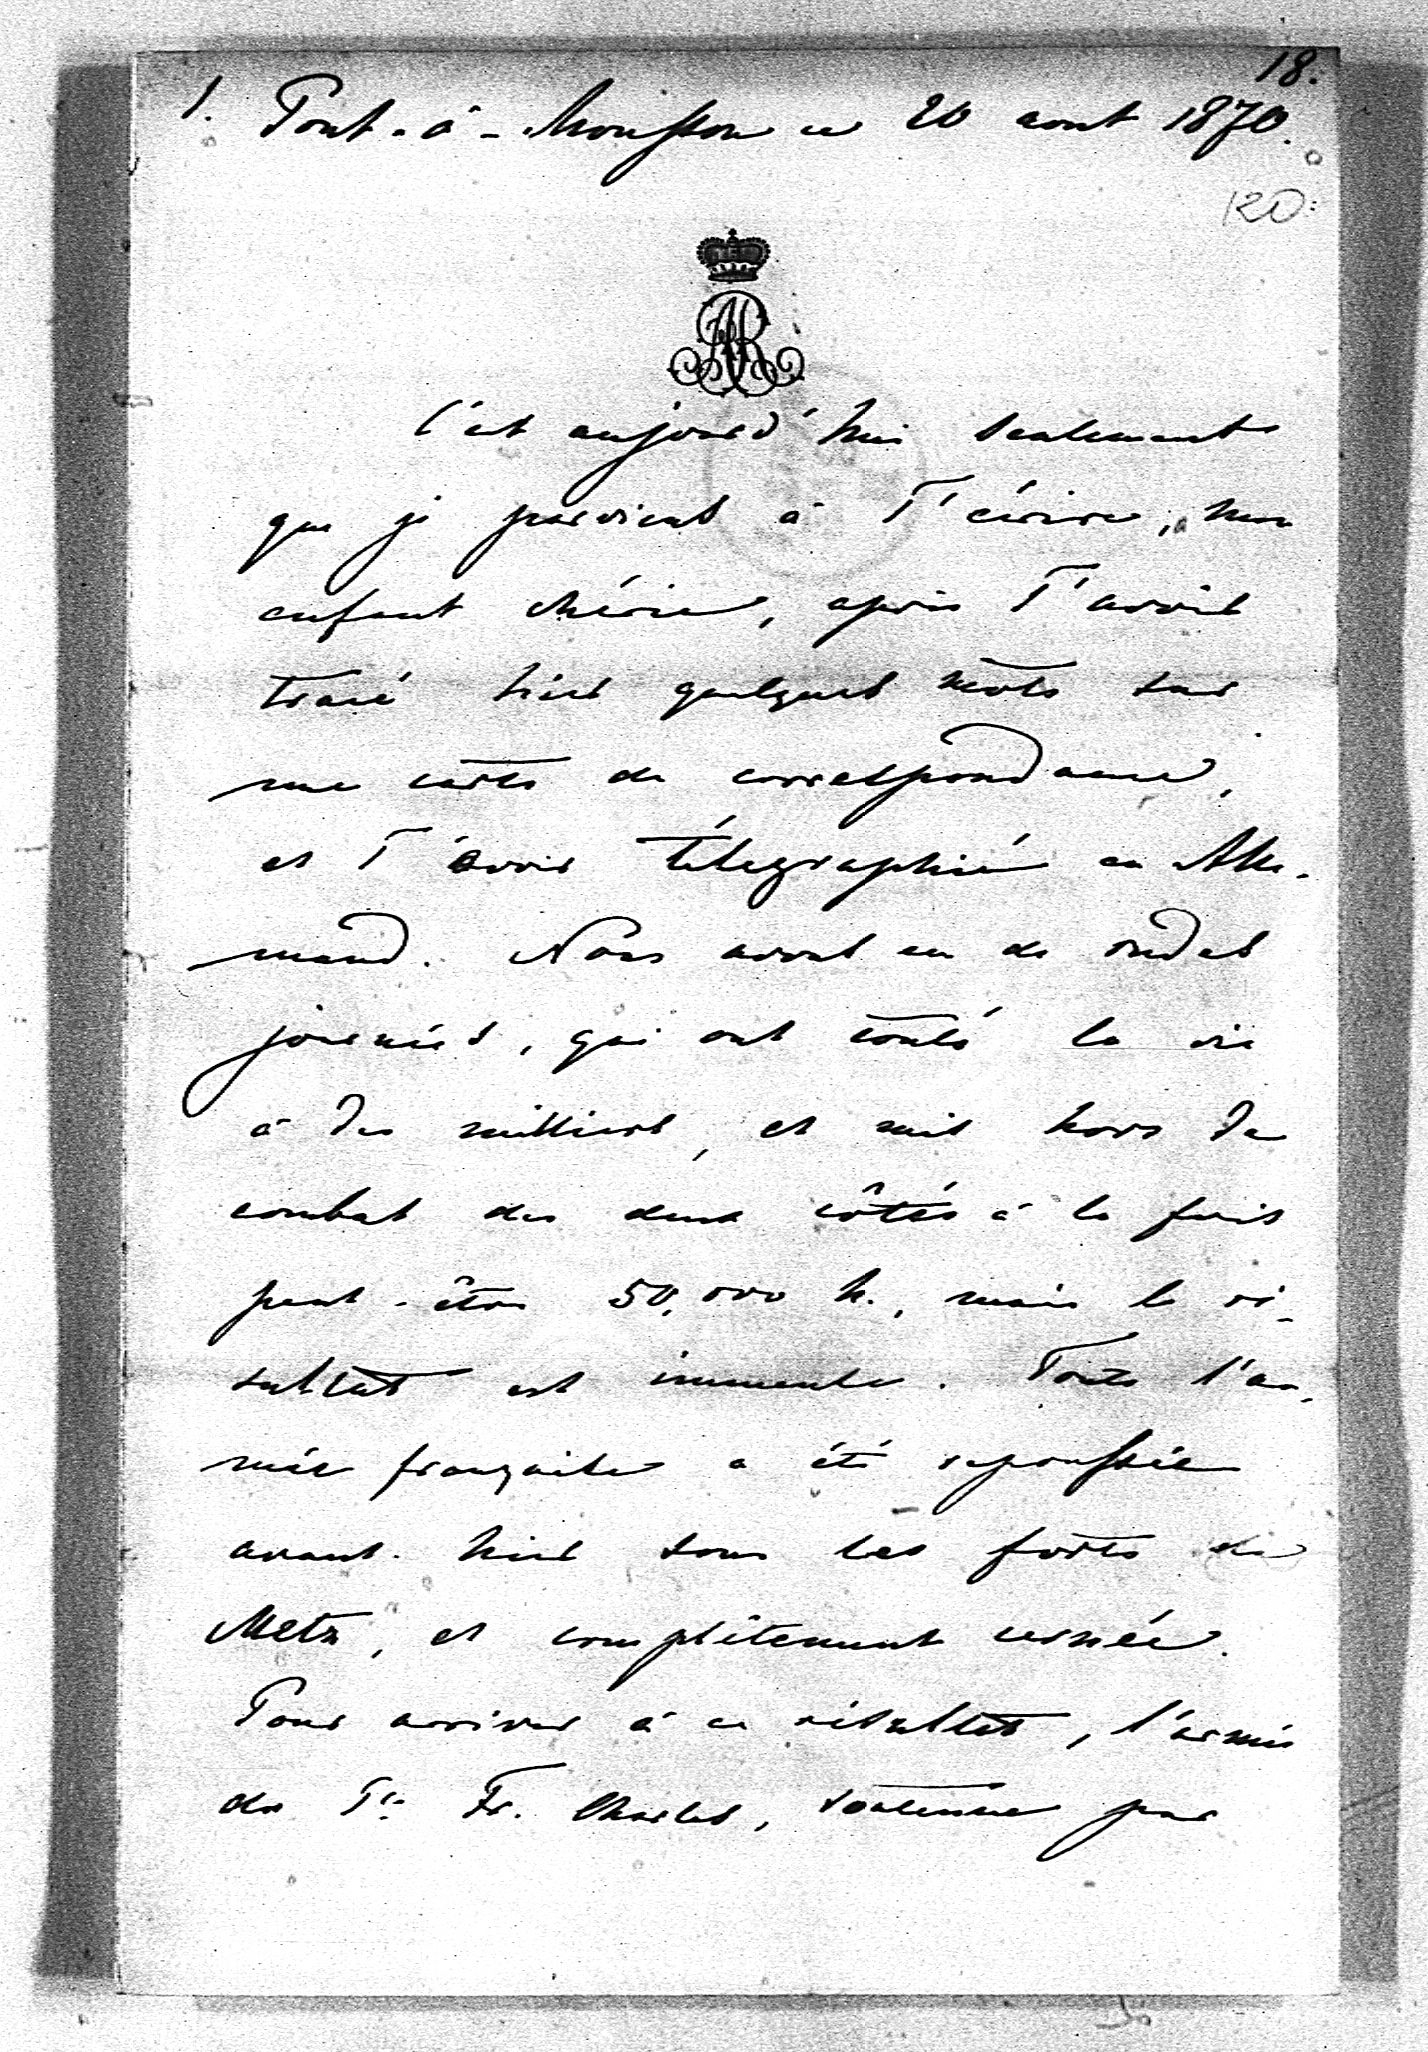 18.
1. Pont-à-Mousson ce 20 aout 1870.
120
AR
C'est aujourd'hui seulement
que je parviens à T'écrire, mon
enfant chérie, après T'avoir
tracé hier quelques mots sur
une carte de correspondance,
et T'avoir télégraphié en Alle-
mand. Nous avons eu de rudes
journées, qui ont coûté la vie
à des milliers, et mis hors de
combat des deux côtés à la fois
peut-être 50,000 h., mais le ré-
sultat est immense. Toute l'ar-
mée française a été repoussée
avant-hier sous les forts de
Metz, et complètement cernée.
Pour arriver à ce résultat, l'armée
du Pce Fr. Charles, soutenue par